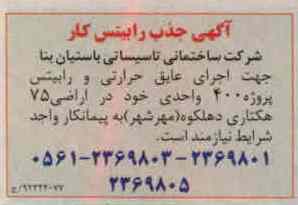 آگهی جذب رابیتس کار
شرکت ساختمانی تاسیساتی باستیان بنا
جهت اجرای عایق حرارتی و رابیتس
پروژه ۴۰۰ واحدی خود در اراضی ۷۵
هکتاری دهلکوه(مهرشهر)به پیمانکار واجد
شرایط نیازمند است.
۰۵۶۱-۲۳۶۹۸۰۳-۲۳۶۹۸۰۱
۲۳۶۹۸۰۵
۹۲۲۲۴۰۷۷/ج